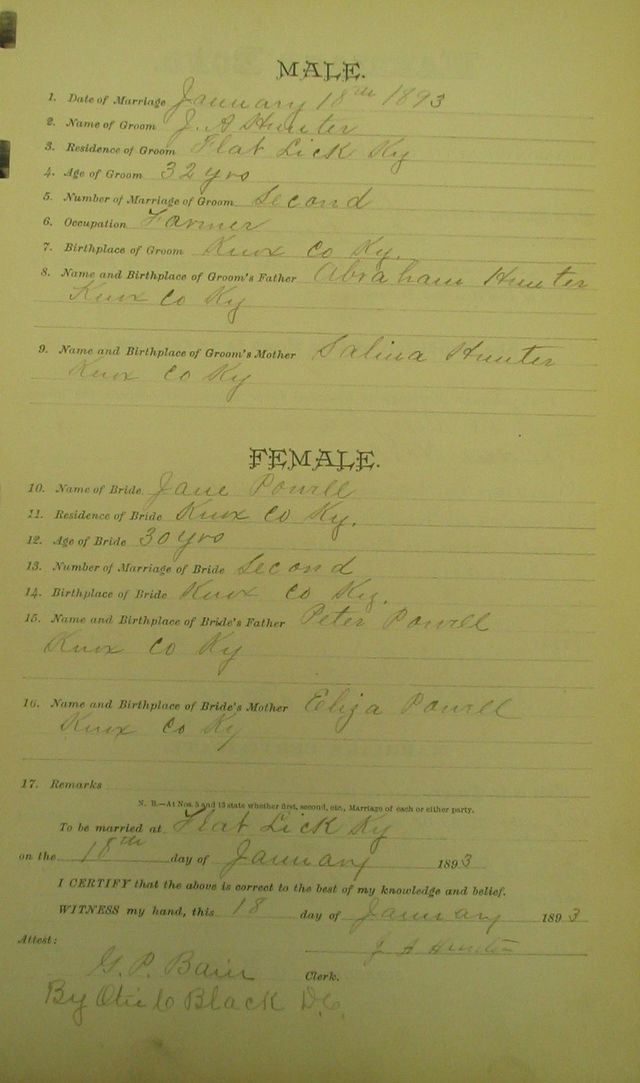 MALE.
1. Date of Marriage January 18th 1893
2. Name of Groom J. A Hunter
3. Residence of Groom Flat Lick Ky
4. Age of Groom 32 yrs
5. Number of Marriage of Groom Second
6. Occupation Farmer
7. Birthplace of Groom Knox Co Ky.
8. Name and Birthplace of Groom's Father Abraham Hunter
Knox Co Ky
9. Name and Birthplace of Groom's Mother Salina Hunter
Knox Co Ky
FEMALE.
10. Name of Bride Jane Powell
11. Residence of Bride Knox Co Ky.
12. Age of Bride 30 yrs
13. Number of Marriage of Bride Second
14. Birthplace of Bride Knox Co Ky.
15. Name and Birthplace of Bride's Father Peter Powell
Knox Co Ky
16. Name and Birthplace of Bride's Mother Eliza Powell
Knox Co Ky
17. Remarks
N. B.—At Nos. 5 and 13 state whether first, second, etc., Marriage of each or either party.
To be married at Flat Lick Ky
on the 18th day of January 1893
I CERTIFY that the above is correct to the best of my knowledge and belief.
WITNESS my hand, this 18 day of January 1893
J A Hunter
Attest:
G. P. Bain Clerk.
By Black D.C.